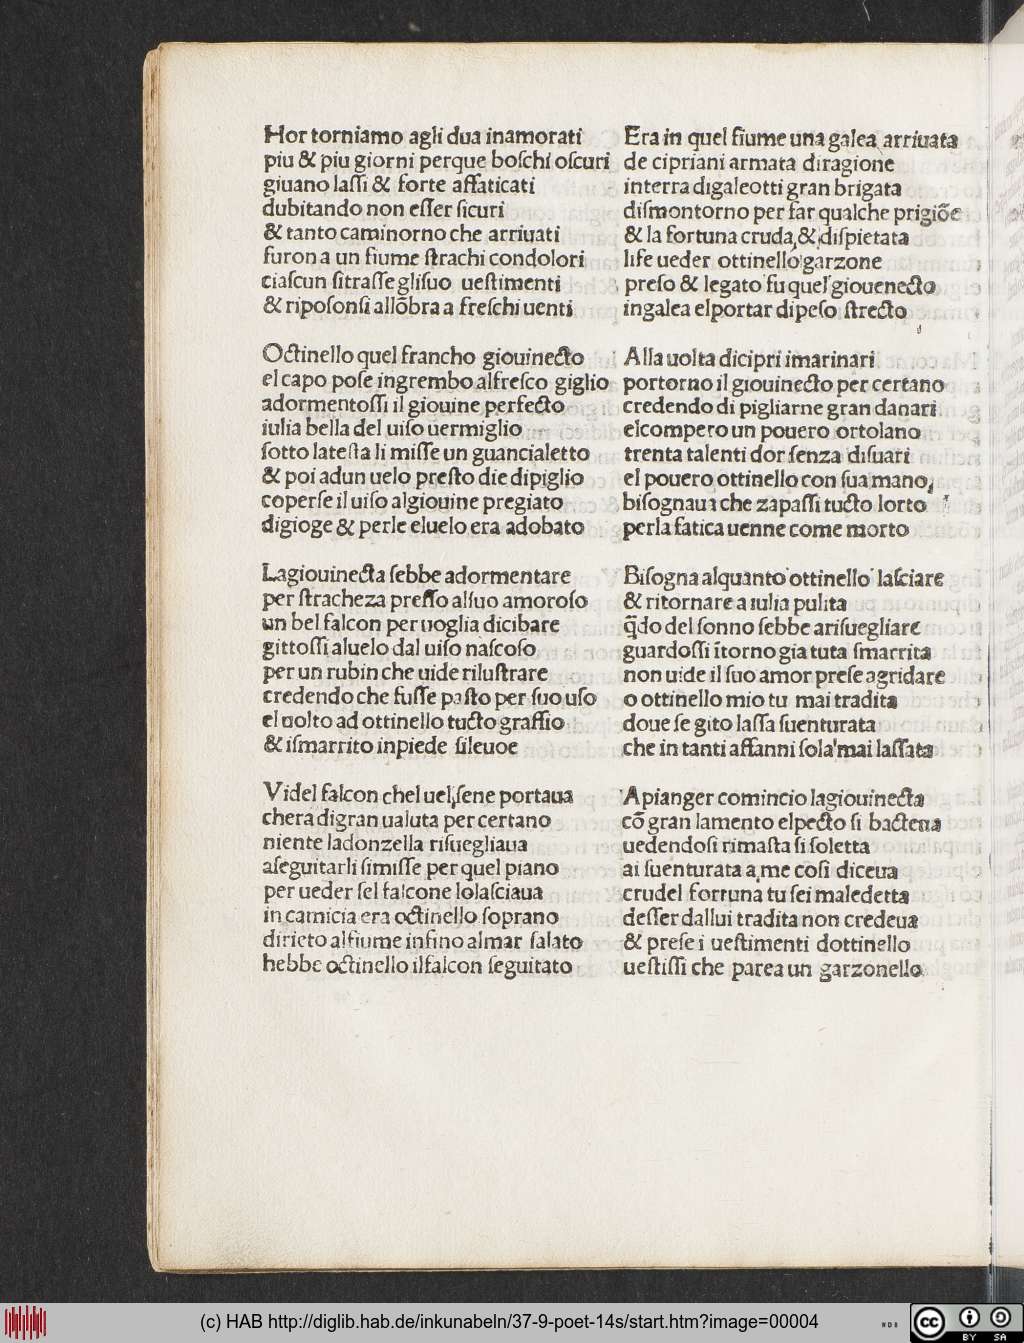 Hor torniamo agli dua inamorati
piu & piu giorni perque boſchi oſcuri
giuano laſſi & forte affaticati
dubitando non eſſer ſicuri
& tanto caminorno che arriuati
furon a un fiume ſtrachi condolori
ciaſcun ſitraſſe gliſuo ueſtimenti
& ripoſonſi allõbra a freſchi uenti
Octinello quel francho giouinecto
el capo poſe ingrembo alfreſco giglio
adormentoſſi il giouine perfecto
iulia bella del uiſo uermiglio
ſotto lateſta li miſſe un guancialetto
& poi adun uelo preſto die dipiglio
coperſe il uiſo algiouine pregiato
digioge & perle eluelo era adobato
Lagiouinecta ſebbe adormentare
per ſtracheza preſſo alſuo amoroſo
un bel falcon per uoglia dicibare
gittoſſi aluelo dal uiſo naſcoſo
per un rubin che uide riluſtrare
credendo che fuſſe paſto per ſuo uſo
el uolto ad ottinello tucto graffio
& iſmarrito inpiede ſileuoe
Videl falcon chel uel ſene portaua
chera digran ualuta per certano
niente ladonzella riſuegliaua
aſeguitarli ſimiſſe per quel piano
per ueder ſel falcone lolaſciaua
in camicia era octinello ſoprano
dirieto alfiume infino almar ſalato
hebbe octinello ilfalcon ſeguitato
Era in quel fiume una galea arriuata
de cipriani armata diragione
interra digaleotti gran brigata
diſmontorno per far qualche prigiõe
& la fortuna cruda & diſpietata
liſe ueder ottinello garzone
preſo & legato fu quel giouenecto
ingalea elportar dipeſo ſtrecto
Alla uolta dicipri imarinari
portorno il giouinecto per certano
credendo di pigliarne gran danari
elcompero un pouero ortolano
trenta talenti dor ſenza diſuari
el pouero ottinello con ſua mano
biſognaua che zapaſſi tucto lorto
perla fatica uenne come morto
Biſogna alquanto ottinello laſciare
& ritornare a iulia pulita
q̃do del ſonno ſebbe ariſuegliare
guardoſſi ĩtorno gia tuta ſmarrita
non uide il ſuo amor preſe agridare
o ottinello mio tu mai tradita
doue ſe gito laſſa ſuenturata
che in tanti affanni ſola mai laſſata
Apianger comincio lagiouinecta
cõ gran lamento elpecto ſi bacteua
uedendoſi rimaſta ſi ſoletta
ai ſuenturata a me coſi diceua
crudel fortuna tu ſei maledetta
deſſer dallui tradita non credeua
& preſe i ueſtimenti dottinello
ueſtiſſi che parea un garzonello
(c) HAB http://diglib.hab.de/inkunabeln/37-9-poet-14s/start.htm?image=00004
cc BY SA